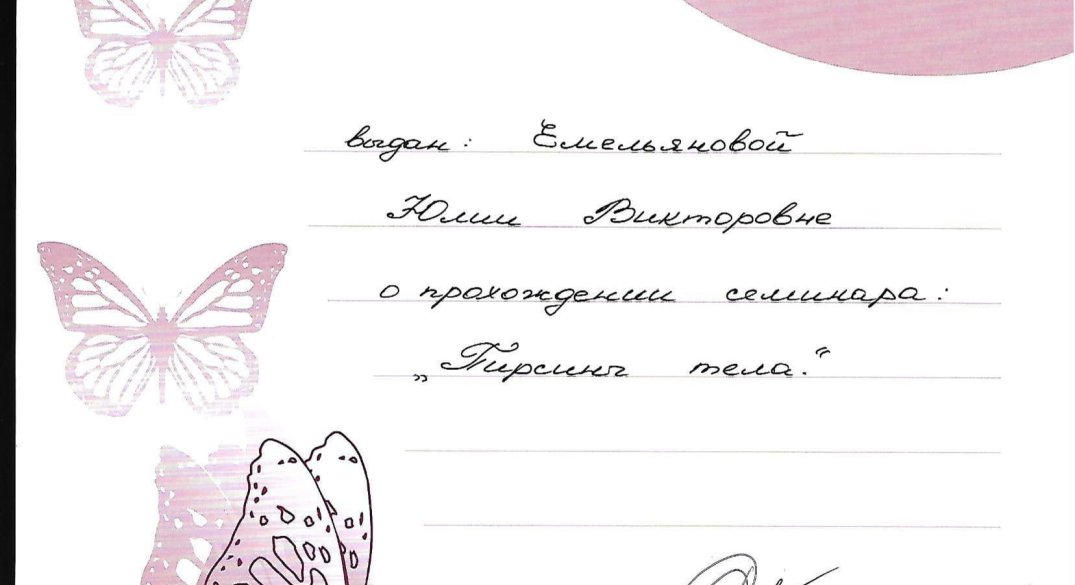 выдан: Емельяновой
Юлии Викторовне
о прохождении семинара:
„Пирсинг тела.“